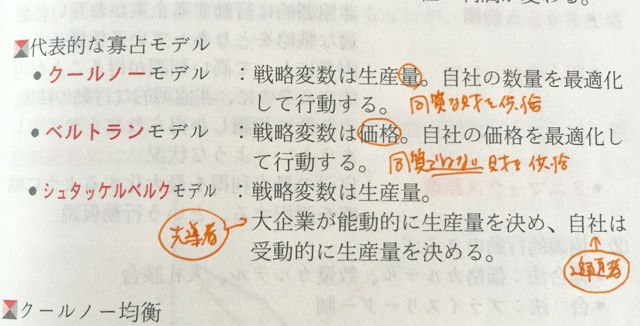 ■代表的な寡占モデル
●クールノーモデル ：戦略変数は生産量。自社の数量を最適化
して行動する。 同質な財を供給
●ベルトランモデル ：戦略変数は価格。自社の価格を最適化し
て行動する。 同質でない財を供給
●シュタッケルベルクモデル：戦略変数は生産量。
先導者 大企業が能動的に生産量を決め、自社は
受動的に生産量を決める。 追随者
クールノー均衡